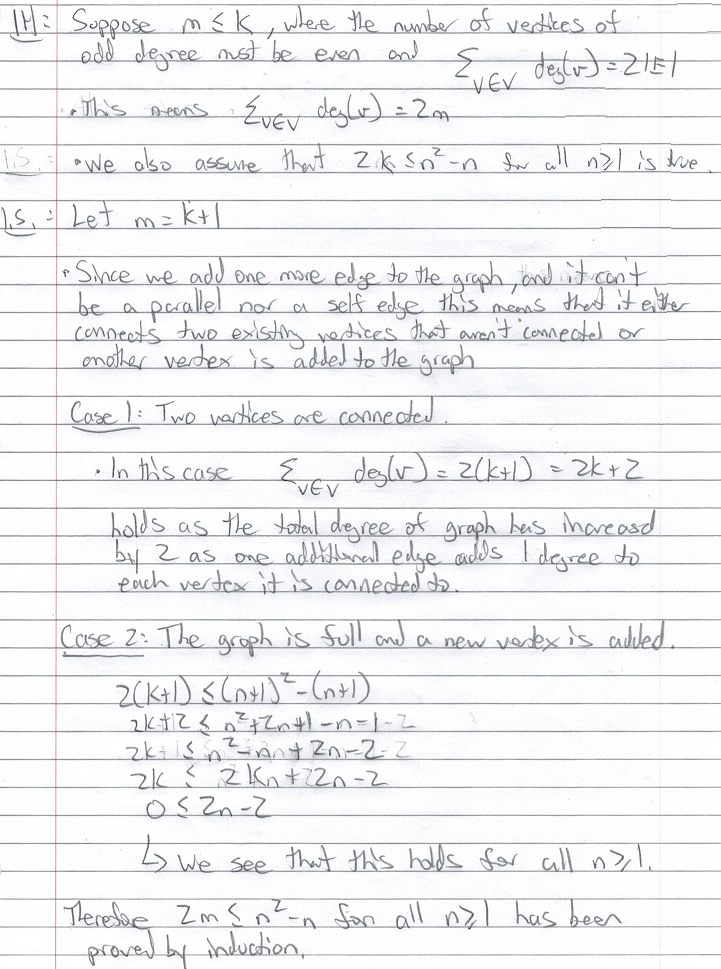 IH: Suppose m ≤ k, where the number of vertices of
odd degree must be even and Σ_{v∈V} deg(v) = 2|E|
• This means Σ_{v∈V} deg(v) = 2m
I.S.: • We also assume that 2k ≤ n² - n for all n ≥ 1 is true.
I.S.: Let m = k+1
• Since we add one more edge to the graph, and it can't
be a parallel nor a self edge this means that it either
connects two existing vertices that aren't connected or
another vertex is added to the graph
Case 1: Two vertices are connected.
• In this case Σ_{v∈V} deg(v) = 2(k+1) = 2k+2
holds as the total degree of graph has increased
by 2 as one additional edge adds 1 degree to
each vertex it is connected to.
Case 2: The graph is full and a new vertex is added.
2(k+1) ≤ (n+1)² - (n+1)
2k+2 ≤ n² + 2n + 1 - n - 1 - 2
2k ≤ n² - n + 2n - 2
2k ≤ 2k + 2n - 2
0 ≤ 2n - 2
↳ We see that this holds for all n ≥ 1.
Therefore 2m ≤ n² - n for all n ≥ 1 has been
proved by induction.